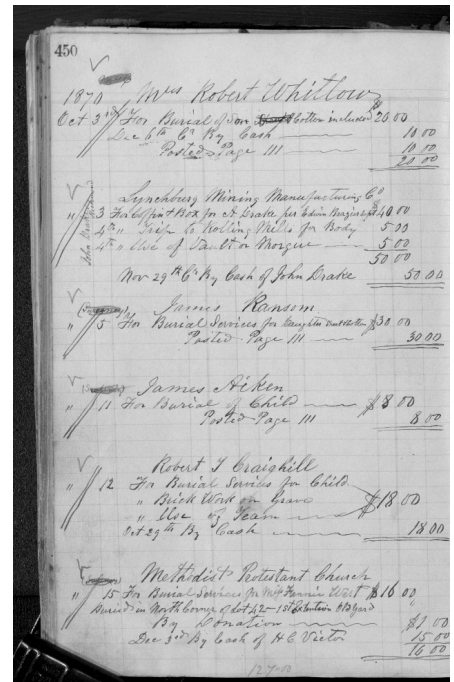 450
1870 Mrs Robert Whitlow
Oct 3rd For Burial of Son Cotten included $20 00
Dec 6th Cr By Cash 10 00
Posted Page 111 10 00
20 00
Lynchburg Mining Manufacturing Co
" 3 For Coffin & Box for A Drake per Edwin $40 00
4th " Trip to Rolling Mills for Body 5 00
4th " Use of Vault or Morgue 5 00
50 00
Nov 29th Cr By Cash of John Drake 50 00
James Ransom
" 5 For Burial Services for daughter $30 00
Posted Page 111 30 00
James Aiken
" 11 For Burial of Child $8 00
Posted Page 111 8 00
Robert T Craighill
" 12 For Burial Services for Child
" Brick Work on Grave $18 00
" Use of Team
Oct 29th By Cash 18 00
Methodist Protestant Church
" 15 For Burial Services for Miss Fannie West $16 00
Buried in North Corner of Lot 42 - 1st Extention
By Donation $1 00
Dec 3rd By Cash of H C Victor 15 00
16 00
127.00